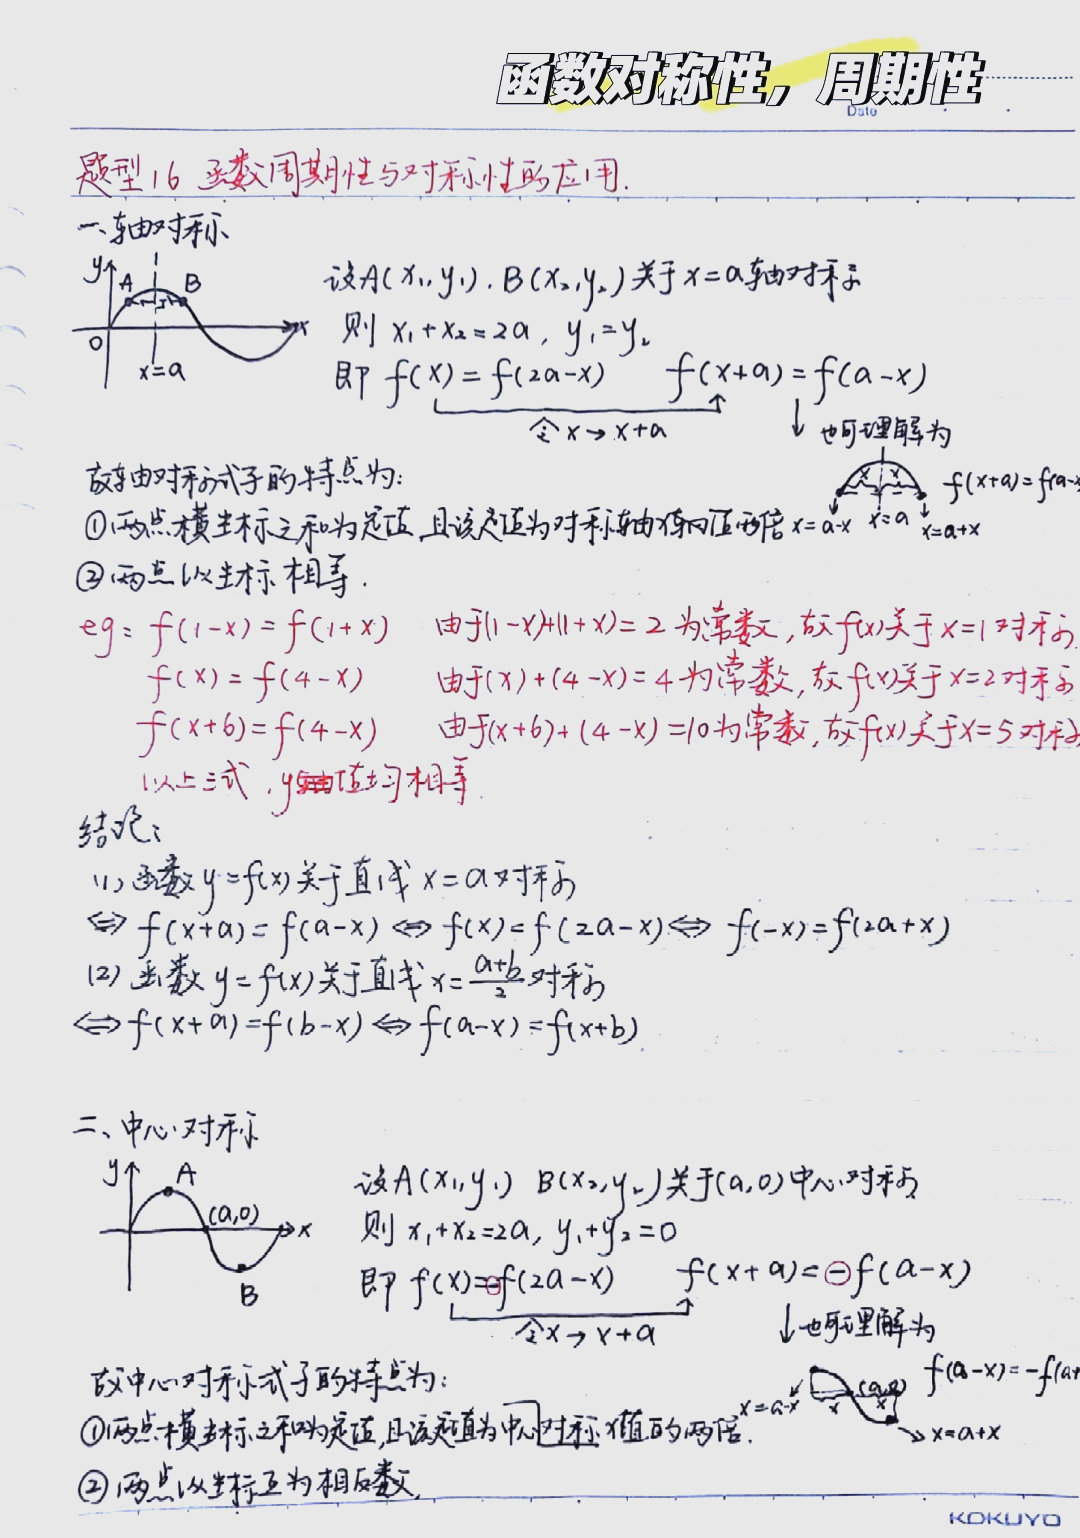 函数对称性，周期性
Date
题型16 函数周期性与对称性的应用.
一、轴对称
y A B
0 x
x=a
设A(x₁,y₁). B(x₂,y₂)关于x=a轴对称
则 x₁+x₂=2a, y₁=y₂
即 f(x)=f(2a-x) f(x+a)=f(a-x)
令x→x+a ↓ 也可理解为
x x f(x+a)=f(a-x
故轴对称式子的特点为:
①两点横坐标之和为定值,且该定值为对称轴x轴的值两倍 x=a-x x=a x=a+x
②两点纵坐标相等.
eg: f(1-x)=f(1+x) 由于(1-x)+(1+x)=2为常数,故f(x)关于x=1对称
f(x)=f(4-x) 由于(x)+(4-x)=4为常数,故f(x)关于x=2对称
f(x+6)=f(4-x) 由于(x+6)+(4-x)=10为常数,故f(x)关于x=5对称
以上三式,y值均相等.
结论:
(1)函数y=f(x)关于直线x=a对称
⇔ f(x+a)=f(a-x)⇔f(x)=f(2a-x)⇔ f(-x)=f(2a+x)
(2)函数y=f(x)关于直线x=(a+b)/2对称
⇔f(x+a)=f(b-x)⇔f(a-x)=f(x+b)
二、中心对称
y A
(a,0) x
B
设A(x₁,y₁) B(x₂,y₂)关于(a,0)中心对称
则 x₁+x₂=2a, y₁+y₂=0
即 f(x)=-f(2a-x) f(x+a)=-f(a-x)
令x→x+a ↓也可理解为
故中心对称式子的特点为:
(a,0) f(a-x)=-f(a+
x=a-x x x
①两点横坐标之和为定值,且该定值为中心对称x值的两倍. x=a+x
②两点纵坐标互为相反数.
KOKUYO